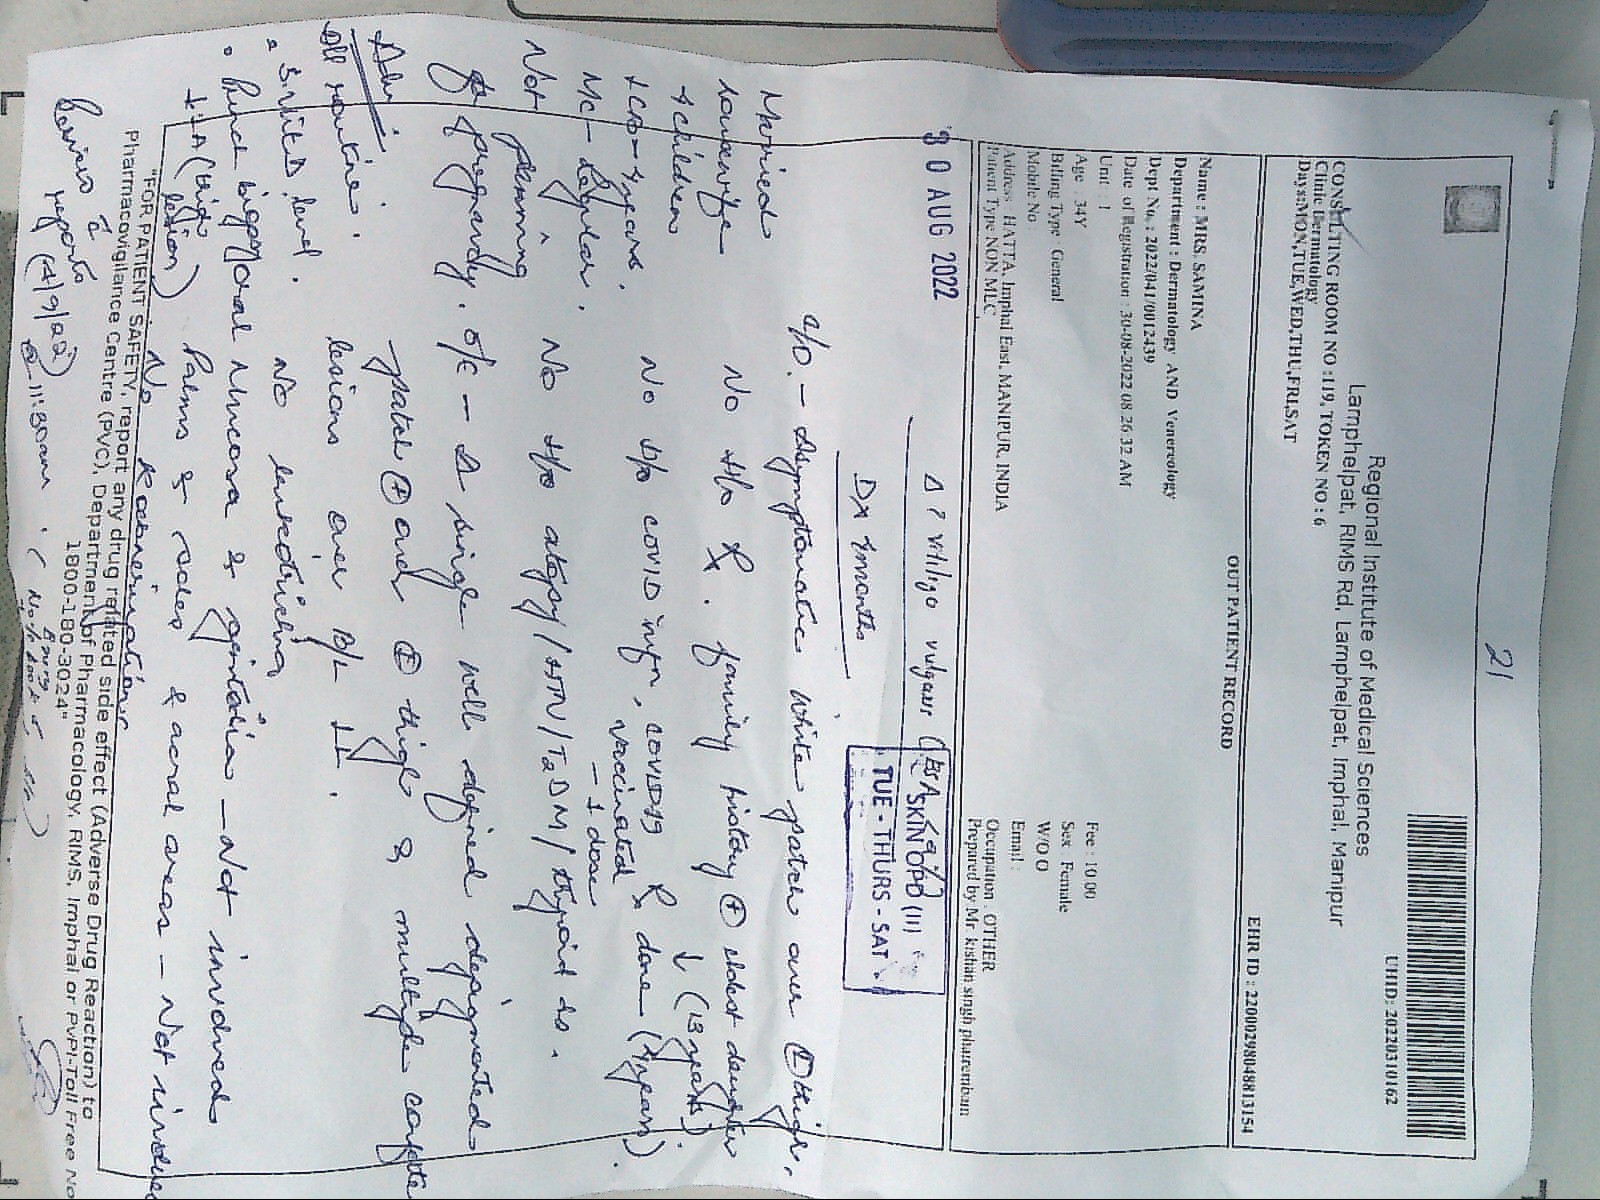 21
Regional Institute of Medical Sciences
Lamphelpat, RIMS Rd, Lamphelpat, Imphal, Manipur
UHID: 20220310162
CONSULTING ROOM NO :119, TOKEN NO : 6
Clinic Dermatology
Days:MON,TUE,WED,THU,FRI,SAT
OUT PATIENT RECORD
EHR ID : 22000298048813154
Name : MRS. SAMINA
Department : Dermatology AND Venereology
Dept No. : 2022/041/0012439
Date of Registration : 30-08-2022 08:26:32 AM
Unit : 1
Fee : 10.00
Age : 34Y
Sex : Female
Billing Type : General
W/O O
Mobile No :
Email :
Address : HATTA, Imphal East, MANIPUR, INDIA
Occupation : OTHER
Patient Type NON MLC
Prepared by Mr. kishan singh pharemban
30 AUG 2022
Δ ? Vitiligo vulgaris
SKIN OPD (II)
TUE - THURS - SAT
Dx months
c/o - Asymptomatic white patch over (L) thigh.
Married
housewife
4 children
LCB - 4 years.
MC - Regular.
Not planning
for pregnancy.
No H/o Rx. family history (+) eldest daughter
↓ (13 years)
No H/o COVID infn, COVID19 Rx done (4 years).
vaccinated
- 1 dose
No H/o atopy/HTN/T2DM/thyroid ds.
O/E - A single well defined depigmented
patch (+) over (L) thigh & multiple
lesions over B/L LL.
No leucotrichia
Oral Mucosa & genitalia - Not involved
Palms & soles & acral areas - Not
No Koebnerisation
Adv:
All routine.
• S. Vit D level.
• Punch biopsy
(thigh
lesion)
"FOR PATIENT SAFETY, report any drug related side effect (Adverse Drug Reaction) to
Pharmacovigilance Centre (PVC), Department of Pharmacology, RIMS, Imphal or PvPI-Toll Free No
1800-180-3024"
Review c̄
reports
(4/9/22)
@ 11:30am.